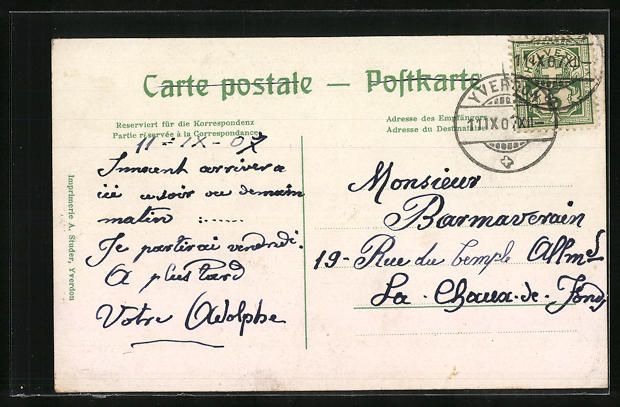 Carte postale — Postkarte
Reserviert für die Korrespondenz
Partie réservée à la Correspondance
Adresse des Empfängers
Adresse du Destinataire
YVERDON
11.IX.07.XII
11-IX-07
Innocent arrivera
ici ce soir ou demain
matin
Je partirai vendredi.
A plus tard
Votre Adolphe
Monsieur
Barmaverain
19 - Rue du Temple Allmd
La - Chaux-de-Fonds
Imprimerie A. Studer, Yverdon